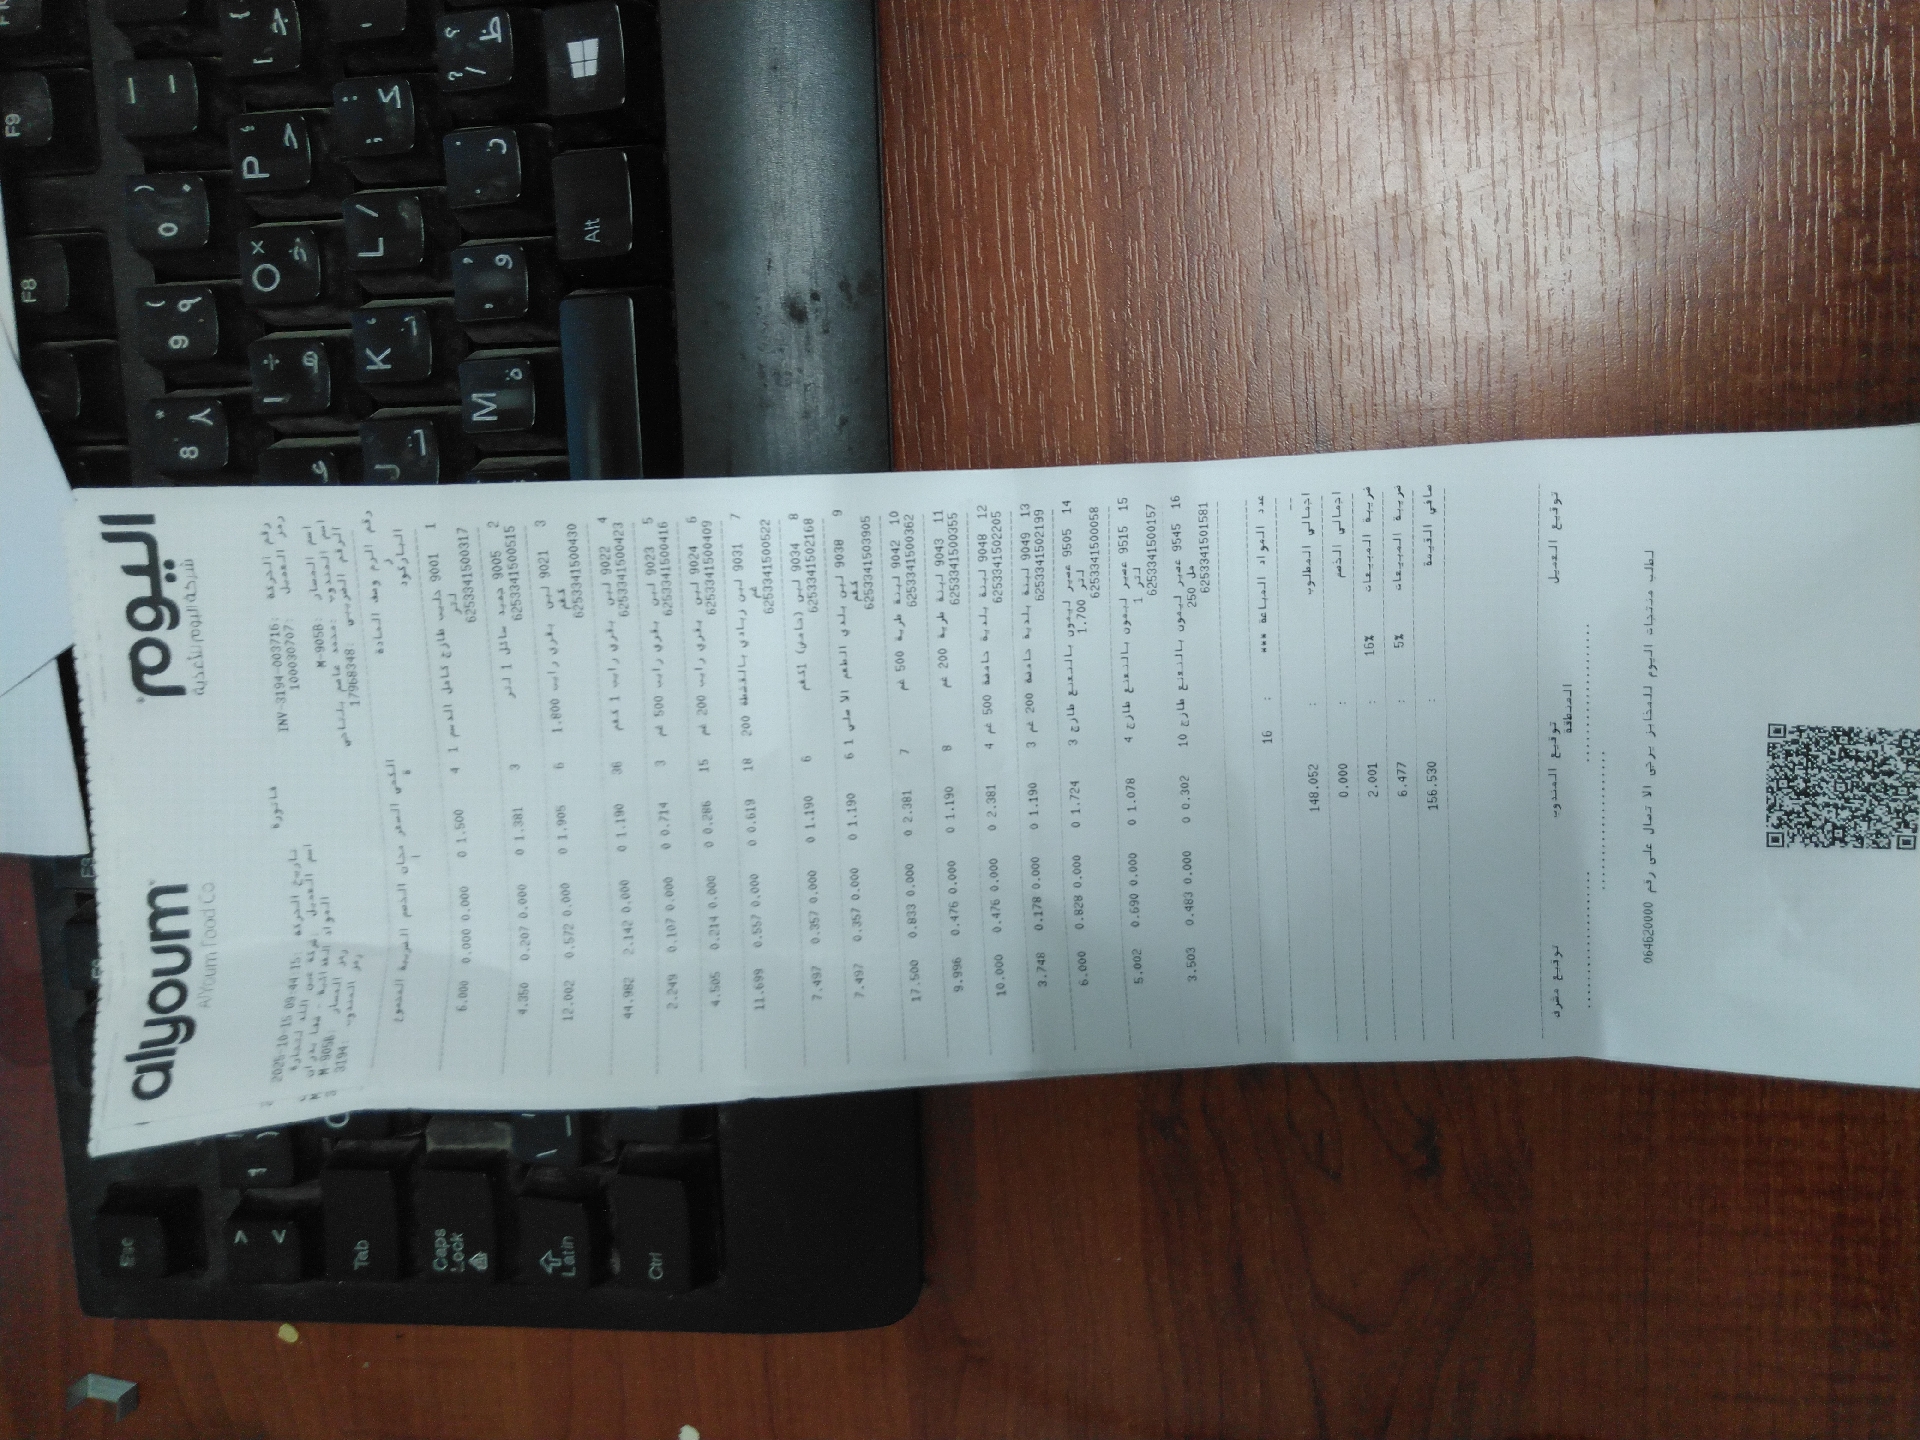 alyoum اليوم
AlYoum Food Co شركة اليوم للأغذية
فاتورة
رقم الحركة: INV-3194-003716
تاريخ الحركة: 2025-10-15 09:44:15
رمز العميل: 100030707
اسم المسار: M-905B
رمز المسار: M-905B
رمز المندوب: 3194
الرقم الضريبي: 17968348
رقم الرمز وصف المادة
الباركود
السعر مجان الخصم الضريبة المجموع
1 9001 حليب طازج كامل الدسم 1 لتر 4 1.500 0 0.000 0.000 6.000
6253341500317
2 9005 جميد سائل 1 لتر 3 1.381 0 0.000 0.207 4.350
6253341500515
3 9021 لبن بقري رايب 1.800 كغم 6 1.905 0 0.000 0.572 12.002
6253341500430
4 9022 لبن بقري رايب 1 كغم 36 1.190 0 0.000 2.142 44.982
6253341500423
5 9023 لبن بقري رايب 500 غم 3 0.714 0 0.000 0.107 2.249
6253341500416
6 9024 لبن بقري رايب 200 غم 15 0.286 0 0.000 0.214 4.505
6253341500409
7 9031 لبن زبادي بالقشطة 200 غم 18 0.619 0 0.000 0.557 11.699
6253341500522
8 9034 لبن (حامض) 1كغم 6 1.190 0 0.000 0.357 7.497
6253341502168
9 9038 لبن بلدي الطعم الاصلي 1 كغم 6 1.190 0 0.000 0.357 7.497
6253341503905
10 9042 لبنة طرية 500 غم 7 2.381 0 0.000 0.833 17.500
6253341500362
11 9043 لبنة طرية 200 غم 8 1.190 0 0.000 0.476 9.996
6253341500355
12 9048 لبنة بلدية حامضة 500 غم 4 2.381 0 0.000 0.476 10.000
6253341502205
13 9049 لبنة بلدية حامضة 200 غم 3 1.190 0 0.000 0.178 3.748
6253341502199
14 9505 عصير ليمون بالنعنع طازج 1.700 لتر 3 1.724 0 0.000 0.828 6.000
6253341500058
15 9515 عصير ليمون بالنعنع طازج 1 لتر 4 1.078 0 0.000 0.690 5.002
6253341500157
16 9545 عصير ليمون بالنعنع طازج 250 مل 10 0.302 0 0.000 0.483 3.503
6253341501581
عدد المواد المباعة *** : 16
اجمالي المطلوب : 148.052
اجمالي الخصم : 0.000
ضريبة المبيعات 16% : 2.001
ضريبة المبيعات 5% : 6.477
صافي القيمة : 156.530
توقيع العميل توقيع المندوب توقيع مشرف
المنطقة
لطلب منتجات اليوم للمخابز يرجى الاتصال على رقم 064620000
F9
F8
P
O
I
L
K
M
Alt
0
9
8
Esc
Tab
Caps Lock
Latin
Ctrl